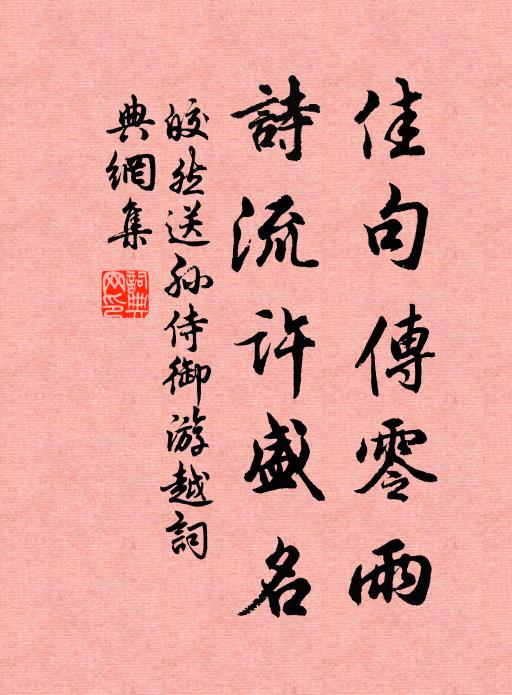 佳句傳零雨
詩流許盛名
皎然送孙侍御游越詞
典網集
詞典网印